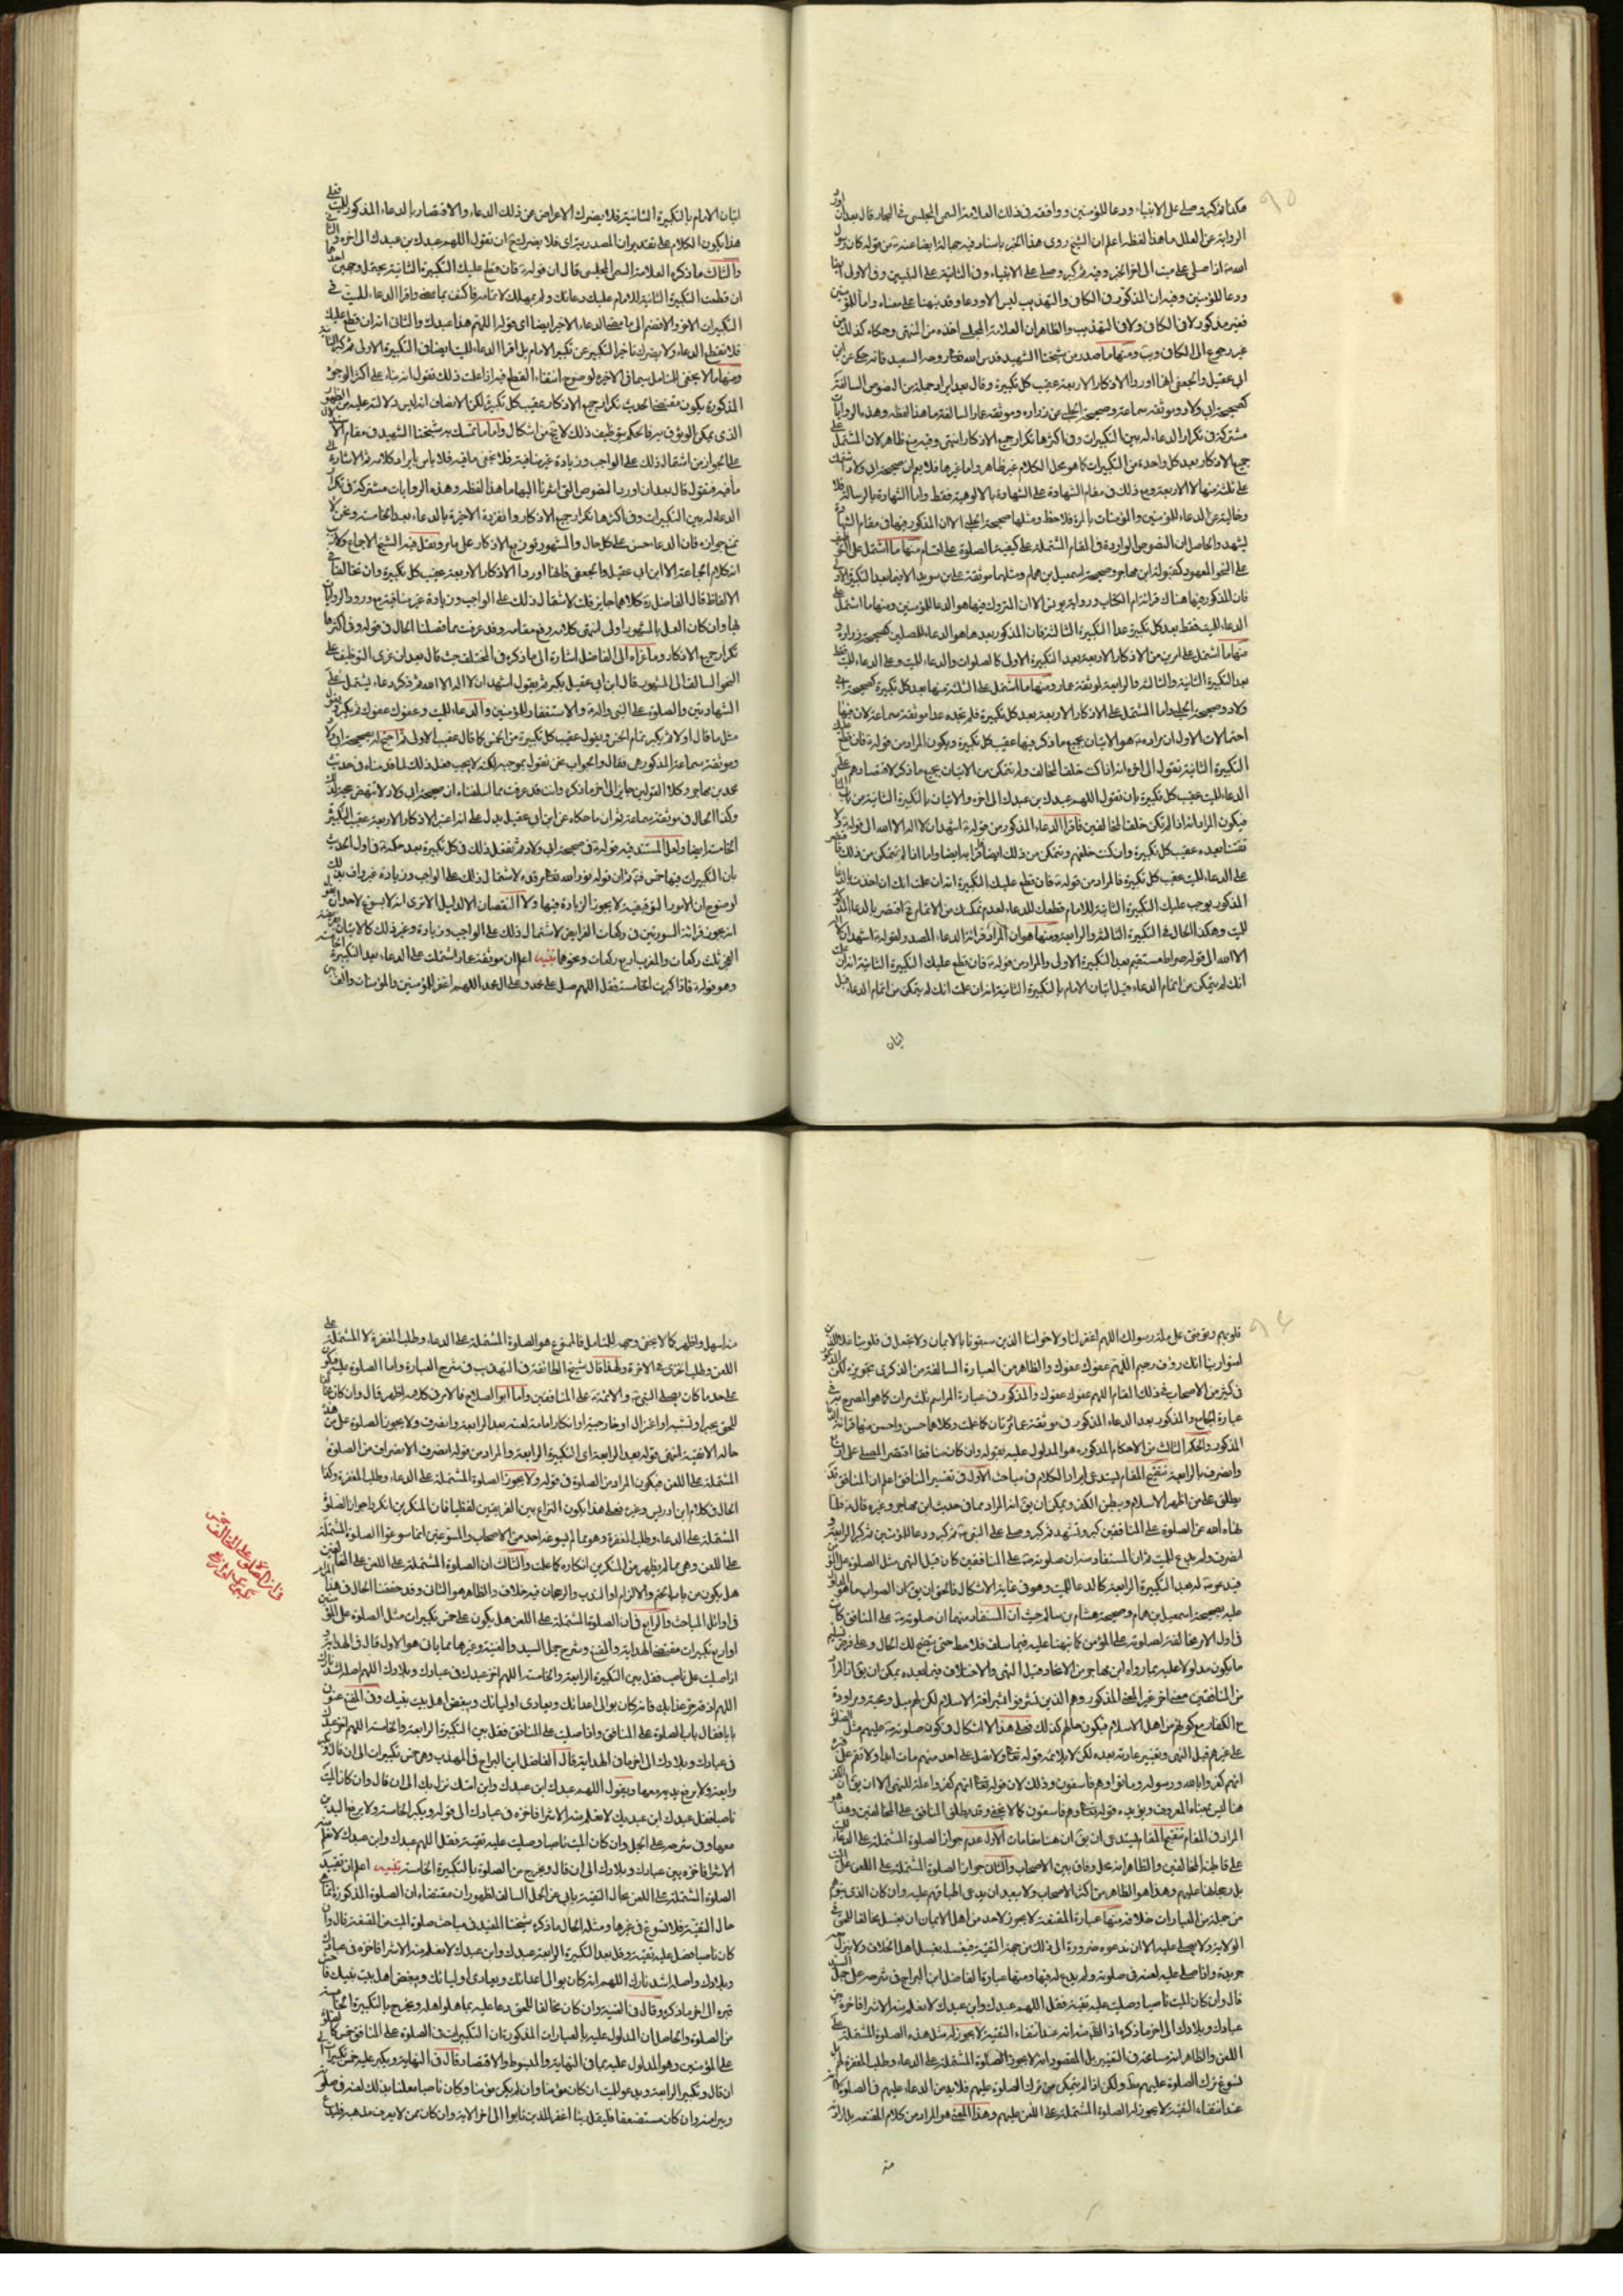 ٩٥
هكذا ثم كبر وصلى على الانبياء ودعا للمؤمنين ووافقه في ذلك العلامة السمي المجلسي في البحار قال بعد ان اورد
الرواية عن العلل ما هذا لفظه اعلم ان الشيخ روى هذا الخبر باسناد فيه جهالة ايضا عنه من قوله كان رسول
الله اذا صلى على ميت الى اخر الخبر وفيه ثم كبر وصلى على الانبياء وفي الثانية على النبيين وفي الاولى ايضا
ودعا للمؤمنين وفيه ان المذكور في الكافي والتهذيب ليس الا ودعا وقد نبهنا على معناه واما للمؤمنين
فغير مذكور لا في الكافي ولا في التهذيب والظاهر ان العلامة المجلسي اخذه من المنتهى وحكاه كذلك من
غير رجوع الى الكافي ويب ومنها ما صدر من شيخنا الشهيد قدس الله تعالى روحه السعيد فانه حكى عن ابن
ابي عقيل والجعفي انهما اوردا الاذكار الاربعة عقيب كل تكبيرة وقال بعد ايراد جملة من النصوص السالفة
كصحيحة ابي ولاد وموثقة سماعة وصحيحة الحلبي عن زراره وموثقة عمار السالفة ما هذا لفظه وهذه الروايات
مشتركة في تكرار الدعاء له بين التكبيرات وفي اكثرها تكرار جميع الاذكار انتهى وفيه منع ظاهر لان المشتمل على
جميع الاذكار بعد كل واحدة من التكبيرات كما هو محل الكلام غير ظاهر واما غيرها فلا نعم ان صحيحة ابي ولاد اشتملت
على ثلثة منها لا الاربعة ومع ذلك في مقام الشهادة على الشهادة بالالوهية فقط واما الشهادة بالرسالة فلا
وخالية عن الدعاء للمؤمنين والمؤمنات بالمرة فلاحظ ومثلها صحيحة الحلبي الا ان المذكور فيها في مقام الشهادة
ليشهد والحاصل ان النصوص الواردة في المقام المشتملة على كيفية الصلوة على اقسام منها ما اشتمل على التفريق
على النحو المعهود كمقبولة ابن مهاجر وصحيحة اسمعيل بن همام ومثلهما موثقة علي بن سويد الا فيما بعد التكبيرة الاولى
فان المذكور فيها هناك قرائة ام الكتاب ورواية يونس الا ان المتروك فيها هو الدعا للمؤمنين ومنها ما اشتمل على
الدعاء للميت فقط بعد كل تكبيرة عدا التكبيرة الثالثة فان المذكور بعدها هو الدعاء للمصلين كصحيحة زرارة و
منها ما اشتمل على امرين من الاذكار الاربعة بعد التكبيرة الاولى كالصلوات والدعاء للميت وعلى الدعاء للميت فقط
بعد التكبيرة الثانية والثالثة والرابعة لوثقة عمار ومنها ما اشتمل على الثلثة منها بعد كل تكبيرة كصحيحة ابي
ولاد وصحيحة الحلبي واما المشتمل على الاذكار الاربعة بعد كل تكبيرة فلم نجده عدا موثقة سماعة لان فيها
احتمالات الاول ان مراده هو الاتيان بجميع ما ذكر فيها عقيب كل تكبيرة ويكون المراد من قوله فان قطع عليك
التكبيرة الثانية تقول الى اخره انه اذا كنت خلف المخالف ولم تتمكن من الاتيان بجميع ما ذكر لاقتصارهم على
الدعاء للميت عقيب كل تكبيرة بان تقول اللهم عبدك بن عبدك الى اخره والاتيان بالتكبيرة الثانية من باب التقية
فيكون المراد انه اذا لم تكن خلف المخالفين فاقرا الدعاء المذكور من قوله اشهد ان لا اله الا الله الى قوله ولا
تفتنا بعده عقيب كل تكبيرة وان كنت خلفهم وتتمكن من ذلك ايضا فاقرا به ايضا واما اذا لم تتمكن من ذلك فاقتصر
على الدعاء للميت عقيب كل تكبيرة فالمراد من قوله فان قطع عليك التكبيرة انه ان علمت انك ان اخذت بالدعاء
المذكور يوجب عليك التكبيرة الثانية للامام قطعك للدعاء لعدم تمكنك من الاتمام ح اقتصر بالدعاء المذكور
للميت وهكذا الحال في التكبيرة الثالثة والرابعة ومنها هو ان المراد قرائة الدعاء المصدر لقوله اشهد ان لا اله
الا الله الى قوله صراط مستقيم بعد التكبيرة الاولى والمراد من قوله فان قطع عليك التكبيرة الثانية انه ان علمت
انك لم تتمكن من اتمام الدعاء قبل اتيان الامام بالتكبيرة الثانية انه ان علمت انك لم تتمكن من اتمام الدعاء قبل
اتيان
اتيان الامام بالتكبيرة الثانية فلا يضرك الاعراض عن ذلك الدعاء والاقتصار بالدعاء المذكور للميت فعلى
هذا يكون الكلام على تقدير ان المصدرية اي فلا يضرك ح ان تقول اللهم عبدك بن عبدك الى اخره و
والثالث ما ذكره العلامة السمي المجلسي قال ان قوله فان قطع عليك التكبيرة الثانية يحتمل وجهين احدهما
ان قطعت التكبيرة الثانية للامام عليك دعائك ولم يمهلك لاتمامه فاكتف بما مضى واقرا الدعاء للميت في
التكبيرات الاخر والا فضم الى ما مضى الدعاء الاخر ايضا اي قوله اللهم هذا عبدك والثاني انه ان قطع عليك
فلا تقطع الدعاء ولا يضرك تاخر التكبير عن تكبير الامام بل اقرا الدعاء للميت ايضا في التكبيرة الاولى ثم كبر الثانية
ومنها ما لا يخفى للمتامل سيما في الاخره لوضوح انتفاء القطع فيه اذا علمت ذلك نقول انه بناء على اكثر الوجوه
المذكورة يكون مقتضى الحديث تكرار جميع الاذكار عقيب كل تكبيرة لكن الانصاف انه ليس دلالته عليه من الظهور
الذي يمكن الوثوق به فالحكم بتوظيف ذلك لا يخ من اشكال واما ما تمسك به شيخنا الشهيد في مقام الاستدلال
على الجواز من اشتمال ذلك على الواجب وزيادة غير منافية فلا يخفى ما فيه فلا باس بايراد كلامه ثم الاشارة الى
ما فيه فنقول قال بعد ان اورد النصوص التي اشرنا اليها ما هذا لفظه وهذه الروايات مشتركة في تكرار
الدعاء له بين التكبيرات وفي اكثرها تكرار جميع الاذكار وانفرد الاخيرة بالدعاء بعد الخامسة ونحن لا
نمنع جوازه فان الدعاء حسن على كل حال والمشهور توزيع الاذكار على ما مر ونقل فيه الشيخ الاجماع ولا ريب
انه كلام الجماعة الا ابن ابي عقيل والجعفي فانهما اوردا الاذكار الاربعة عقيب كل تكبيرة وان تخالفا في
الالفاظ قال الفاضل ره كلاهما جايز قلت لاشتمال ذلك على الواجب وزيادة غير منافية مع ورود الروايات
بها وان كان العمل بالمشهور اولى انتهى كلامه رفع مقامه وقد عرفت مما فصلنا الحال في قوله وفي اكثرها
تكرار جميع الاذكار وما عزاه الى الفاضل اشارة الى ما ذكره في المختلف حيث قال بعد ان عزى التوظيف على
النحو السالف الى المشهور قال ابن ابي عقيل يكبر ثم يقول اشهد ان لا اله الا الله ثم ذكر دعاء يشتمل على
الشهادتين والصلوة على النبي واله والاستغفار للمؤمنين والدعاء للميت وعفوك عفوك ثم يكبر ويقول
مثل ما قال اولا ثم يكبر تمام الخمس ويقول عقيب كل تكبيرة من الخمس كما قال عقيب الاولى ثم احتج له بصحيحة ابي ولاد
وموثقة سماعة المذكورتين فقال والجواب نحن نقول بموجبه لكنه لا يجب فعل ذلك لما قدمناه في حديث
محمد بن مهاجر وكلا القولين جايز الى اخر ما ذكره وانت قد عرفت مما اسلفناه ان صحيحة ابي ولاد لا تنهض حجة لذلك
وكذا الحال في موثقة سماعة ثم ان ما حكاه عن ابن ابي عقيل يدل على انه اعتبر الاذكار الاربعة عقيب التكبيرة
الخامسة ايضا ولعل المستند فيه قوله في صحيحة ابي ولاد ثم تفعل ذلك في كل تكبيرة بعد حكمه في اول الحديث
بان التكبيرات فيها خمس فتم ثم ان قوله نور الله تعالى مرقده لاشتمال ذلك على الواجب وزيادة غير واف بذلك
لوضوح ان الامور التوقيفية لا يجوز الزيادة فيها ولا النقصان الا لدليل الا ترى انه لا يسوغ لاحد ان يقول
انه يجوز قرائة السورتين في ركعات الفرايض لاشتمال ذلك على الواجب وزيادة وغير ذلك كالاتيان بفريضة
الفجر ثلث ركعات والمغرب اربع ركعات ونحوها تنبيه اعلم ان موثقة عمار اشتملت على الدعاء بعد التكبيرة الخامسة
وهو قوله فاذا كبرت الخامسة فقل اللهم صل على محمد وعلى ال محمد اللهم اغفر للمؤمنين والمؤمنات والف بين
٩٦
قلوبهم وتوفني على ملة رسولك اللهم اغفر لنا ولاخواننا الذين سبقونا بالايمان ولا تجعل في قلوبنا غلا للذين
امنوا ربنا انك رؤف رحيم اللهم عفوك عفوك والظاهر من العبارة السالفة من الذكرى تجويزه لكن المذكور
في كثير من الاصحاب في ذلك المقام اللهم عفوك عفوك والمذكور في عبارة المراسم ثلث مرات كما هو المصرح به في
عبارة الجامع والمذكور بعد الدعاء المذكور في موثقة عمار مرتان كما علمت وكلاهما حسن واحسن منها قرائة الدعاء
المذكور والحكم الثالث من الاحكام المذكورة هو المدلول عليه بقوله وان كان منافقا اقتصر المصلي على اربع
وانصرف بالرابعة تنقيح المقام يستدعي ايراد الكلام في مباحث الاول في تفسير المنافق اعلم ان المنافق قد
يطلق على من اظهر الاسلام ويبطن الكفر ويمكن ان يق انه المراد مما في حديث ابن مهاجر وغيره قال فلما
نهاه الله عن الصلوة على المنافقين كبر وتشهد ثم كبر وصلى على النبي ثم كبر ودعا للمؤمنين ثم كبر الرابعة و
انصرف ولم يدع للميت ثم ان المستفاد منه ان صلوته على المنافقين كان قبل النهي مثل الصلوة على المؤمن
فيدعو له بعد التكبيرة الرابعة كالدعا للميت وهو في غاية الاشكال فالحق ان يق ان الصواب ما هو المدلول
عليه بصحيحة اسمعيل بن همام وصحيحة هشام بن سالم حيث ان المستفاد منهما ان صلوته على المنافق كان
في اول الامر مخالفة لصلوته على المؤمن كما نبهنا عليه فيما سلف فلاحظ حتى يتضح لك الحال وعلى فرض تسليم
ما يكون مدلولا عليه بما رواه ابن مهاجر من الاتحاد قبل النهي والاختلاف فيما بعده يمكن ان يق ان المراد
من المنافقين معنى اخر غير المعنى المذكور وهم الذين تشرفوا بشرافة الاسلام لكن لهم ميل ومحبة ومراودة
مع الكفار مع كونهم من اهل الاسلام فيكون حالهم كذلك فعلى هذا لا اشكال في كون صلوته عليهم مثل الصلوة
على غيرهم قبل النهي وتغيير عادته بعده لكن لا يلائمه قوله تعالى ولا تصل على احد منهم مات ابدا ولا تقم على قبره
انهم كفروا بالله ورسوله وماتوا وهم فاسقون وذلك لان قوله تعالى انهم كفروا علة للنهي الا ان يق ان الكفر
هنا ليس بمعناه المعروف ويؤيده قوله تعالى وهم فاسقون كما لا يخفى وقد يطلق المنافق على المخالفين وهذا هو
المراد في المقام تنقيح المقام يستدعي ان يق ان هنا مقامات الاول عدم جواز الصلوة المشتملة على الدعاء للميت
على قاطبة المخالفين والظاهر انه محل وفاق بين الاصحاب والثاني جواز الصلوة المشتملة على اللعن على الميت
بل رجحانها عليهم وهذا هو الظاهر من اكثر الاصحاب ولا يبعد ان يدعى اطباقهم عليه وان كان الذي يتوهم
من جملة من العبارات خلافه منها عبارة المقنعة لا يجوز لاحد من اهل الايمان ان يغسل مخالفا للحق في
الولاية ولا يصلى عليه الا ان تدعوه ضرورة الى ذلك من جهة التقية فيغسله تغسيل اهل الخلاف ولا يترك معه
جريدة واذا صلى عليه لعنه في صلوته ولم يدع له فيها ومنها عبارة الفاضل ابن البراج في شرحه على جمل السيد
قال وان كان الميت ناصبا وصليت عليه تقية فقل اللهم عبدك وابن عبدك لا نعلم منه الا شرا فاخزه في
عبادك وبلادك الى اخر ما ذكره اذ الظاهر منه انه عند انتفاء التقية لا يجوز له مثل هذه الصلوة المشتملة على
اللعن والظاهر انه مسامحة في التعبير بل المقصود انه لا يجوز الصلوة المشتملة على الدعاء وطلب المغفرة لهم بل
يسوغ ترك الصلوة عليهم مط ولكن اذا لم يتمكن من ترك الصلوة عليهم فلا بد من الدعاء عليهم في الصلوة لا انه
عند انتفاء التقية لا يجوز له الصلوة المشتملة على اللعن عليهم وهذا المعنى هو المراد من كلام المقنعة بل ارادته
منه
منه اسهل واظهر كما لا يخفى وجهه للمتامل فالممنوع هو الصلوة المشتملة على الدعاء وطلب المغفرة لا المشتملة على
اللعن وطلب الخزي في الاخرة ولهذا قال شيخ الطائفة في التهذيب في شرح العبارة واما الصلوة عليه فيكون
على حد ما كان يصلى النبي والائمة على المنافقين واما ابو الصلاح فالامر في كلامه اظهر قال وان كان مخالفا
للحق بجبر او تشبيه او اعتزال او خارجية او انكار امامة لعنه بعد الرابعة وانصرف ولا يجوز الصلوة على من هذه
حاله الا تقية انتهى قوله بعد الرابعة اي التكبيرة الرابعة والمراد من قوله انصرف الانصراف من الصلوة
المشتملة على اللعن فيكون المراد من الصلوة في قوله ولا يجوز الصلوة المشتملة على الدعاء وطلب المغفرة وكذا
الحال في كلام ابن ادريس وغيره فعلى هذا يكون النزاع بين الفريقين لفظيا فان المنكرين انكروا جواز الصلوة
المشتملة على الدعاء وطلب المغفرة وهو مما لم يسوغه احد من الاصحاب والمسوغين انما سوغوا الصلوة المشتملة
على اللعن وهي مما لم يظهر من المنكرين انكاره كما علمت والثالث ان الصلوة المشتملة على اللعن على المخالفين
هل يكون من باب الحتم والالزام او الندب والرجحان فيه خلاف والظاهر هو الثاني وقد حققنا الحال في هذا المرام
في اوائل المباحث والرابع في ان الصلوة المشتملة على اللعن هل يكون على خمس تكبيرات مثل الصلوة على المؤمنين
او اربع تكبيرات مقتضى الهداية والمقنع وشرح جمل السيد والغنية وغيرها مما ياتي هو الاول قال في الهداية و
اذا صليت على ناصب فقل بين التكبيرة الرابعة والخامسة اللهم اخز عبدك في عبادك وبلادك اللهم اصله اشد نارك
اللهم اذقه حر عذابك فانه كان يوالي اعدائك ويعادي اوليائك ويبغض اهل بيت نبيك وفي المقنع عنون
بابا فقال باب الصلوة على المنافق واذا صليت على المنافق فقل بين التكبيرة الرابعة والخامسة اللهم اخز عبدك
في عبادك وبلادك الى اخر ما في الهداية قال الفاضل ابن البراج في المهذب وهي خمس تكبيرات الى ان قال ويكبر
رابعة ولا يرفع يديه معها ويقول اللهم عبدك ابن عبدك وابن امتك نزل بك الى ان قال وان كان الميت
ناصبا فقل عبدك ابن عبديك لا نعلم منه الا شرا فاخزه في عبادك الى قوله ويكبر الخامسة ولا يرفع اليدين
معها وفي شرحه على الجمل وان كان الميت ناصبا وصليت عليه تقية فقل اللهم عبدك وابن عبدك لا نعلم منه
الا شرا فاخزه بين عبادك وبلادك الى ان قال ويخرج من الصلوة بالتكبيرة الخامسة تنبيه اعلم ان تقييد
الصلوة المشتملة على اللعن بحال التقية ياتي عن الحل السالف لظهور ان مقتضاه ان الصلوة المذكورة انما في
حال التقية فلا تسوغ في غيرها ومثله الحال ما ذكره شيخنا المفيد في مباحث صلوة الميت من المقنعة قال وان
كان ناصبا فصل عليه تقية وقل بعد التكبيرة الرابعة عبدك وابن عبدك لا نعلم منه الا شرا فاخزه في عبادك
وبلادك واصله اشد نارك اللهم انه كان يوالي اعدائك ويعادي اوليائك ويبغض اهل بيت نبيك فاحش
قبره الى اخر ما ذكره وقال في الغنية وان كان مخالفا للحق دعا عليه بما هو اهله ويخرج بالتكبيرة الخامسة
من الصلوة والحاصل ان المدلول عليه بالعبارات المذكورة ان التكبيرات في الصلوة على المنافق خمس كالصلوة
على المؤمنين وهو المدلول عليه بما في النهاية والمبسوط والاقتصاد قال في النهاية ويكبر عليه خمس تكبيرات الى
ان قال وتكبير الرابعة ويدعو للميت ان كان مؤمنا وان لم يكن مؤمنا وكان ناصبا معلنا بذلك لعنه في صلوته
وتبرا منه وان كان مستضعفا فليقل ربنا اغفر للذين تابوا الى اخر الاية وان كان ممن لا يعرف مذهبه فليدع
في ان الصلوة على المخالف خمس تكبيرات او اربع